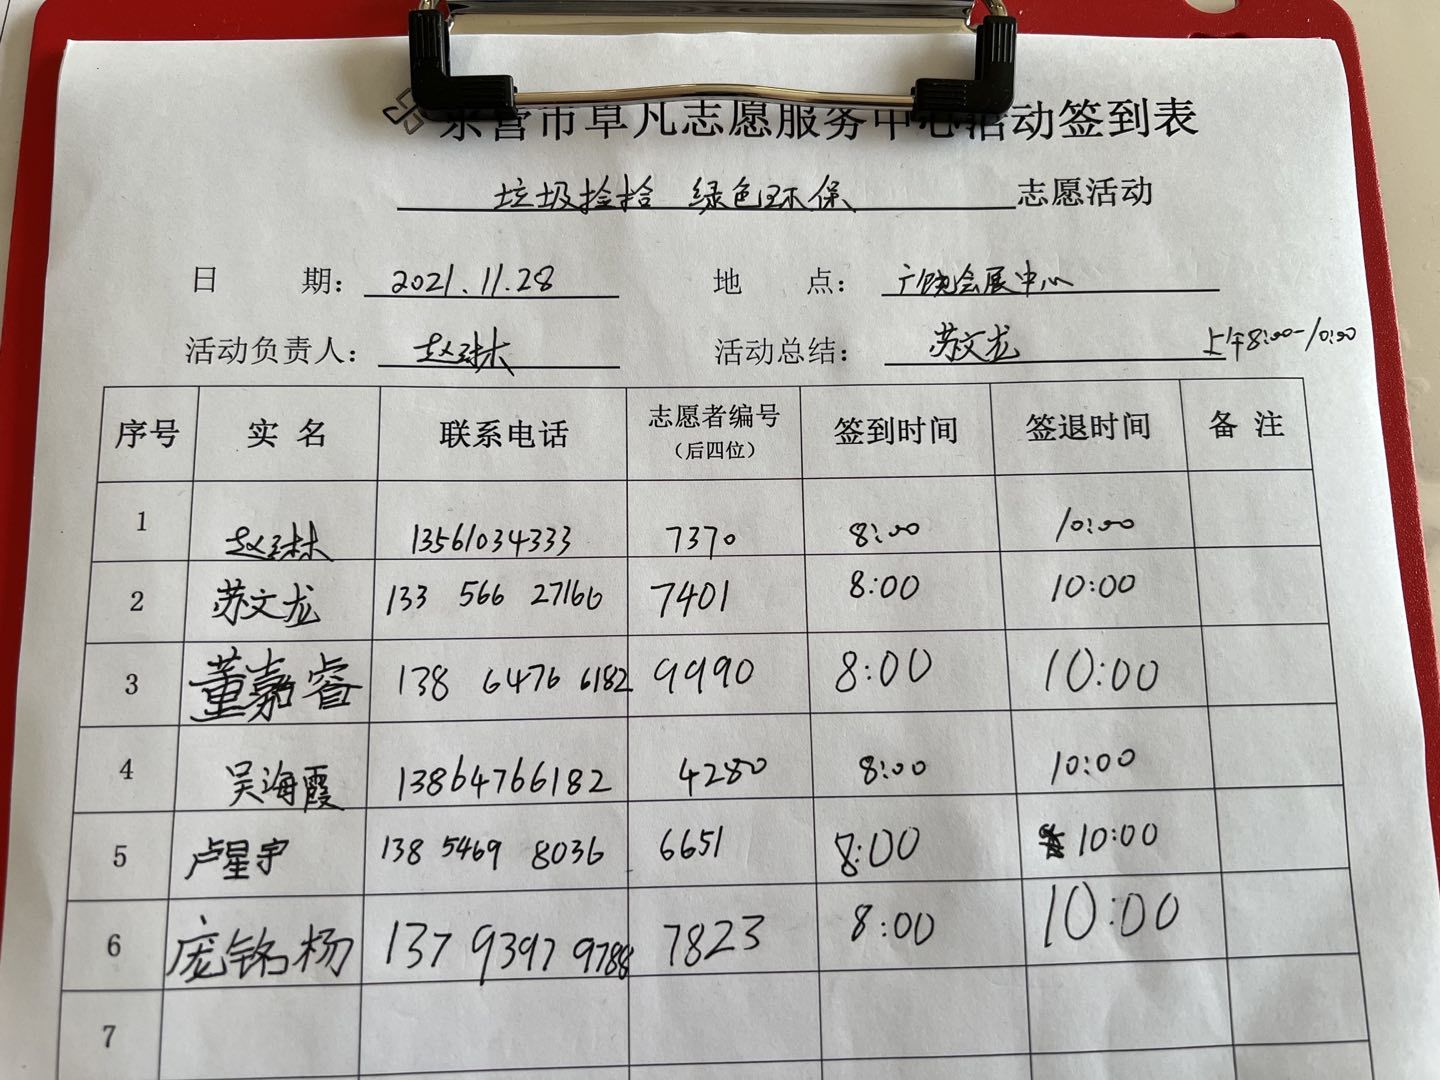 东营市草凡志愿服务中心活动签到表
垃圾捡拾 绿色环保 志愿活动
日 期： 2021.11.28 地 点： 广饶会展中心
活动负责人： 赵琳 活动总结： 苏文龙 上午8:00-10:00
序号 实名 联系电话 志愿者编号 签到时间 签退时间 备注
（后四位）
1 赵琳 13561034333 7370 8:00 10:00
2 苏文龙 133 566 27166 7401 8:00 10:00
3 董嘉睿 138 6476 6182 9990 8:00 10:00
4 吴海霞 13864766182 4280 8:00 10:00
5 卢星宇 138 5469 8036 6651 8:00 10:00
6 庞铭杨 137 9397 9788 7823 8:00 10:00
7